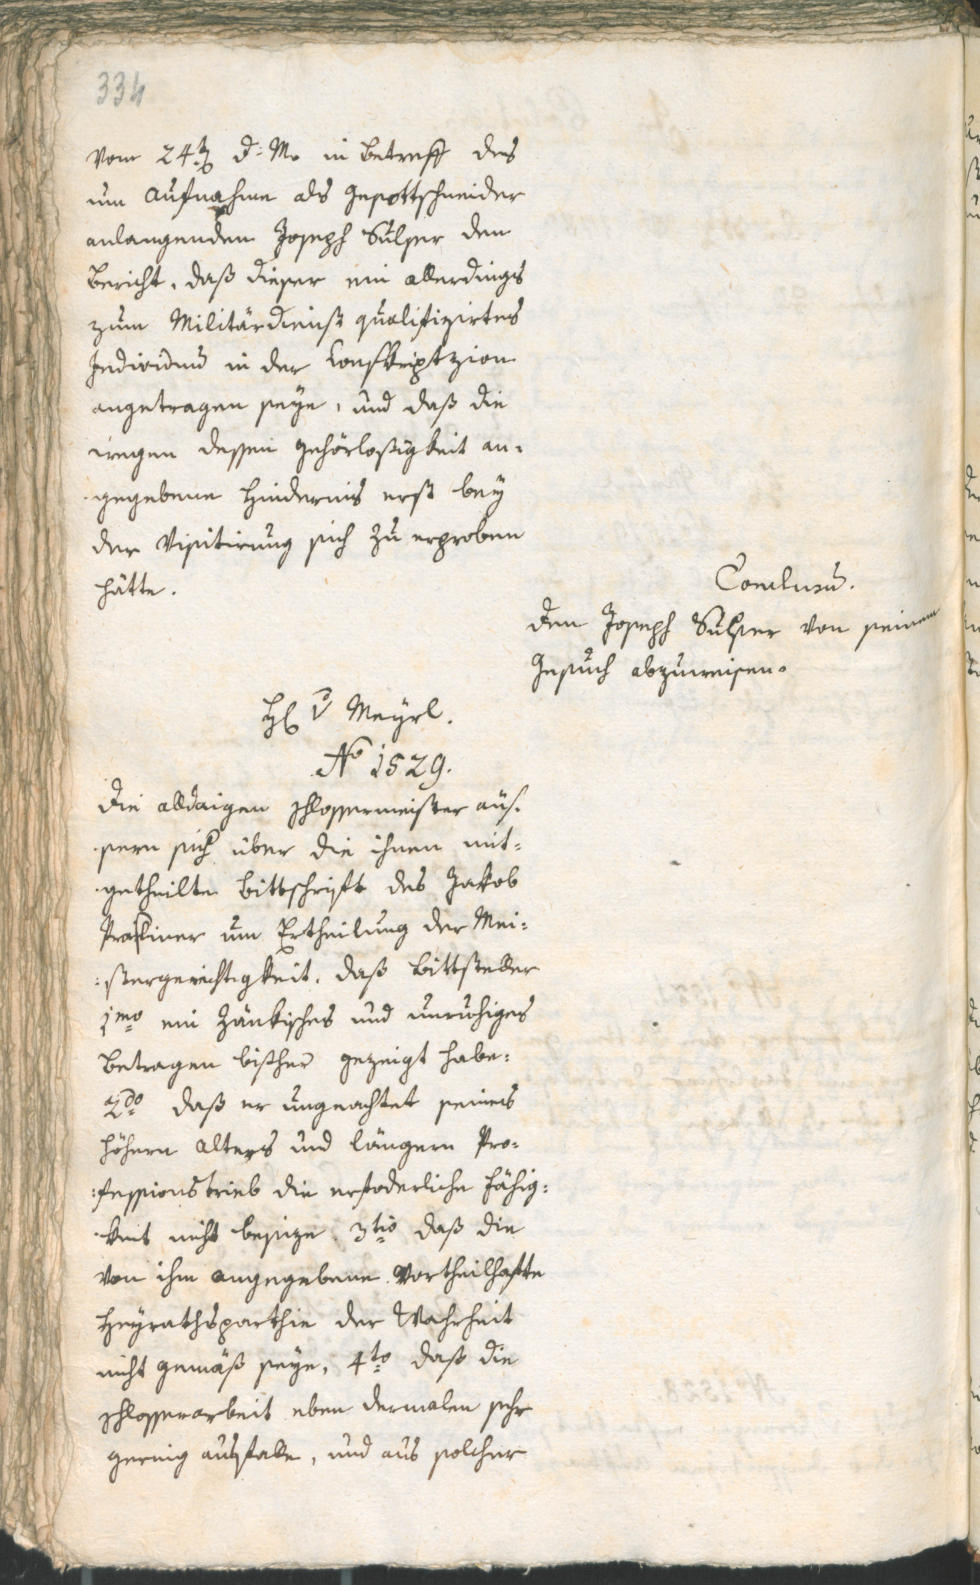 334
vom 24t d: M. in Betreff des
um Aufnahme als Gespottschneider
anlangenden Joseph Sulzer den
Bericht, daß dieser ein allerdings
zum Militärdienst qualifizirtes
Individuū in der Conskriptzion
angetragen seye, und daß die
wegen dessen Gehörlosigkeit an-
gegebene Hindernis erst bey
der Visitirung sich zu erproben
hätte.
Conclusū.
Den Joseph Sulzer von seinem
Gesuch abzuweisen.
H v Meyrl.
No 1529.
Die alldaigen Schlossermeister äus-
sern sich über die ihnen mit-
getheilte Bittschrift des Jakob
um Ertheilung der Mei-
stergerechtigkeit, daß Bittsteller
1mo ein Zänkisches und unruhiges
Betragen bisher gezeigt habe:
2do daß er ungeachtet seines
höhern Alters und längern Pro-
fessionstrieb die erfoderliche Fähig-
keit nicht besize. 3tio daß die
von ihm angegebene Vortheilhafte
Heyrathsparthie der Wahrheit
nicht gemäß seye, 4to daß die
Schlosserarbeit eben dermalen sehr
gering ausfalle, und aus solcher